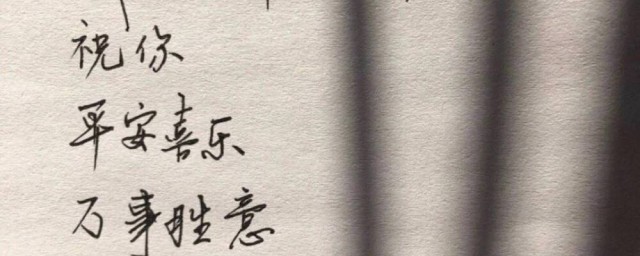 祝你
平安喜乐
万事胜意